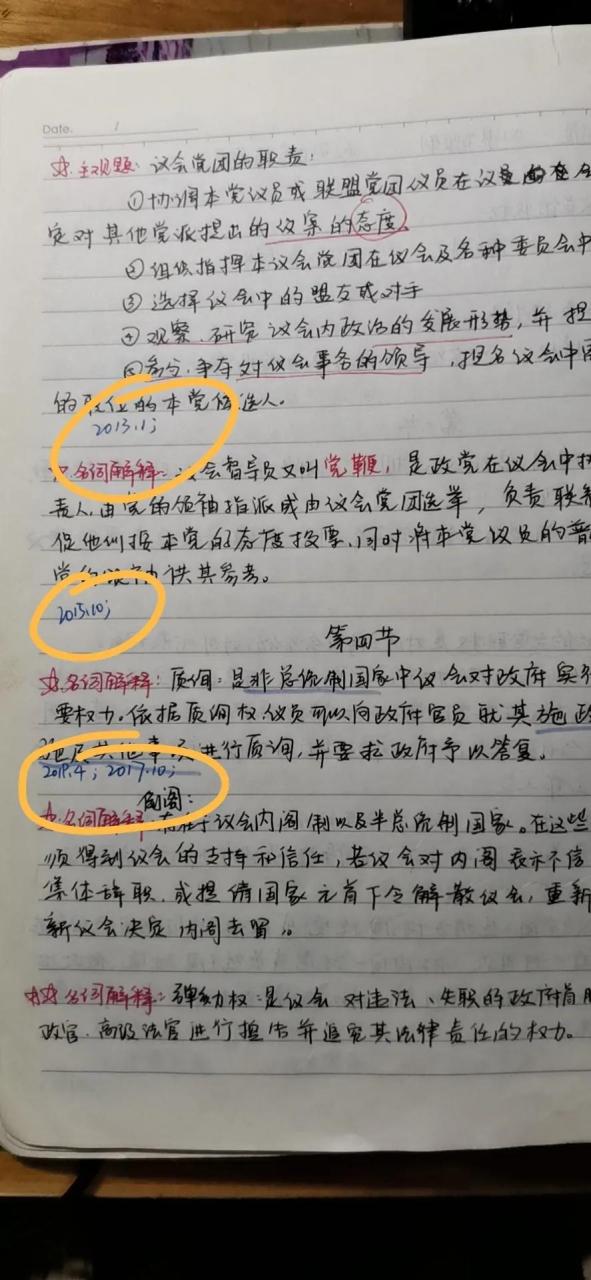 Date. 1
☆.主观题: 议会党团的职责:
①协调本党议员或联盟党团议员在议会
定对其他党派提出的议案的态度.
②组织指挥本议会党团在议会及各种委员会中
③选择议会中的盟友或对手
④观察.研究议会内政治的发展形势,并提
⑤参与.争夺对议会事务的领导,提名议会中
的职位的本党候选人.
2013.1;
☆.名词解释: 议会督导员又叫党鞭,是政党在议会中
责人,由党的领袖指派或由议会党团选举,负责联系
促他们按本党的态度投票.同时将本党议员的
党的领袖供其参考。
2015.10;
第四节
☆.名词解释: 质询:是非总统制国家中议会对政府实行
要权力.依据质询权.议员可以向政府官员就其施政
及其他事项进行质询,并要求政府予以答复。
2019.4; 2017.10;
倒阁:
☆.名词解释 存在于议会内阁制以及半总统制国家。在这些
须得到议会的支持和信任,若议会对内阁表示不信
集体辞职.或提请国家元首下令解散议会,重新
新议会决定内阁去留。
☆☆.名词解释: 弹劾权:是议会对违法、失职的政府首脑
政官.高级法官进行控告并追究其法律责任的权力。